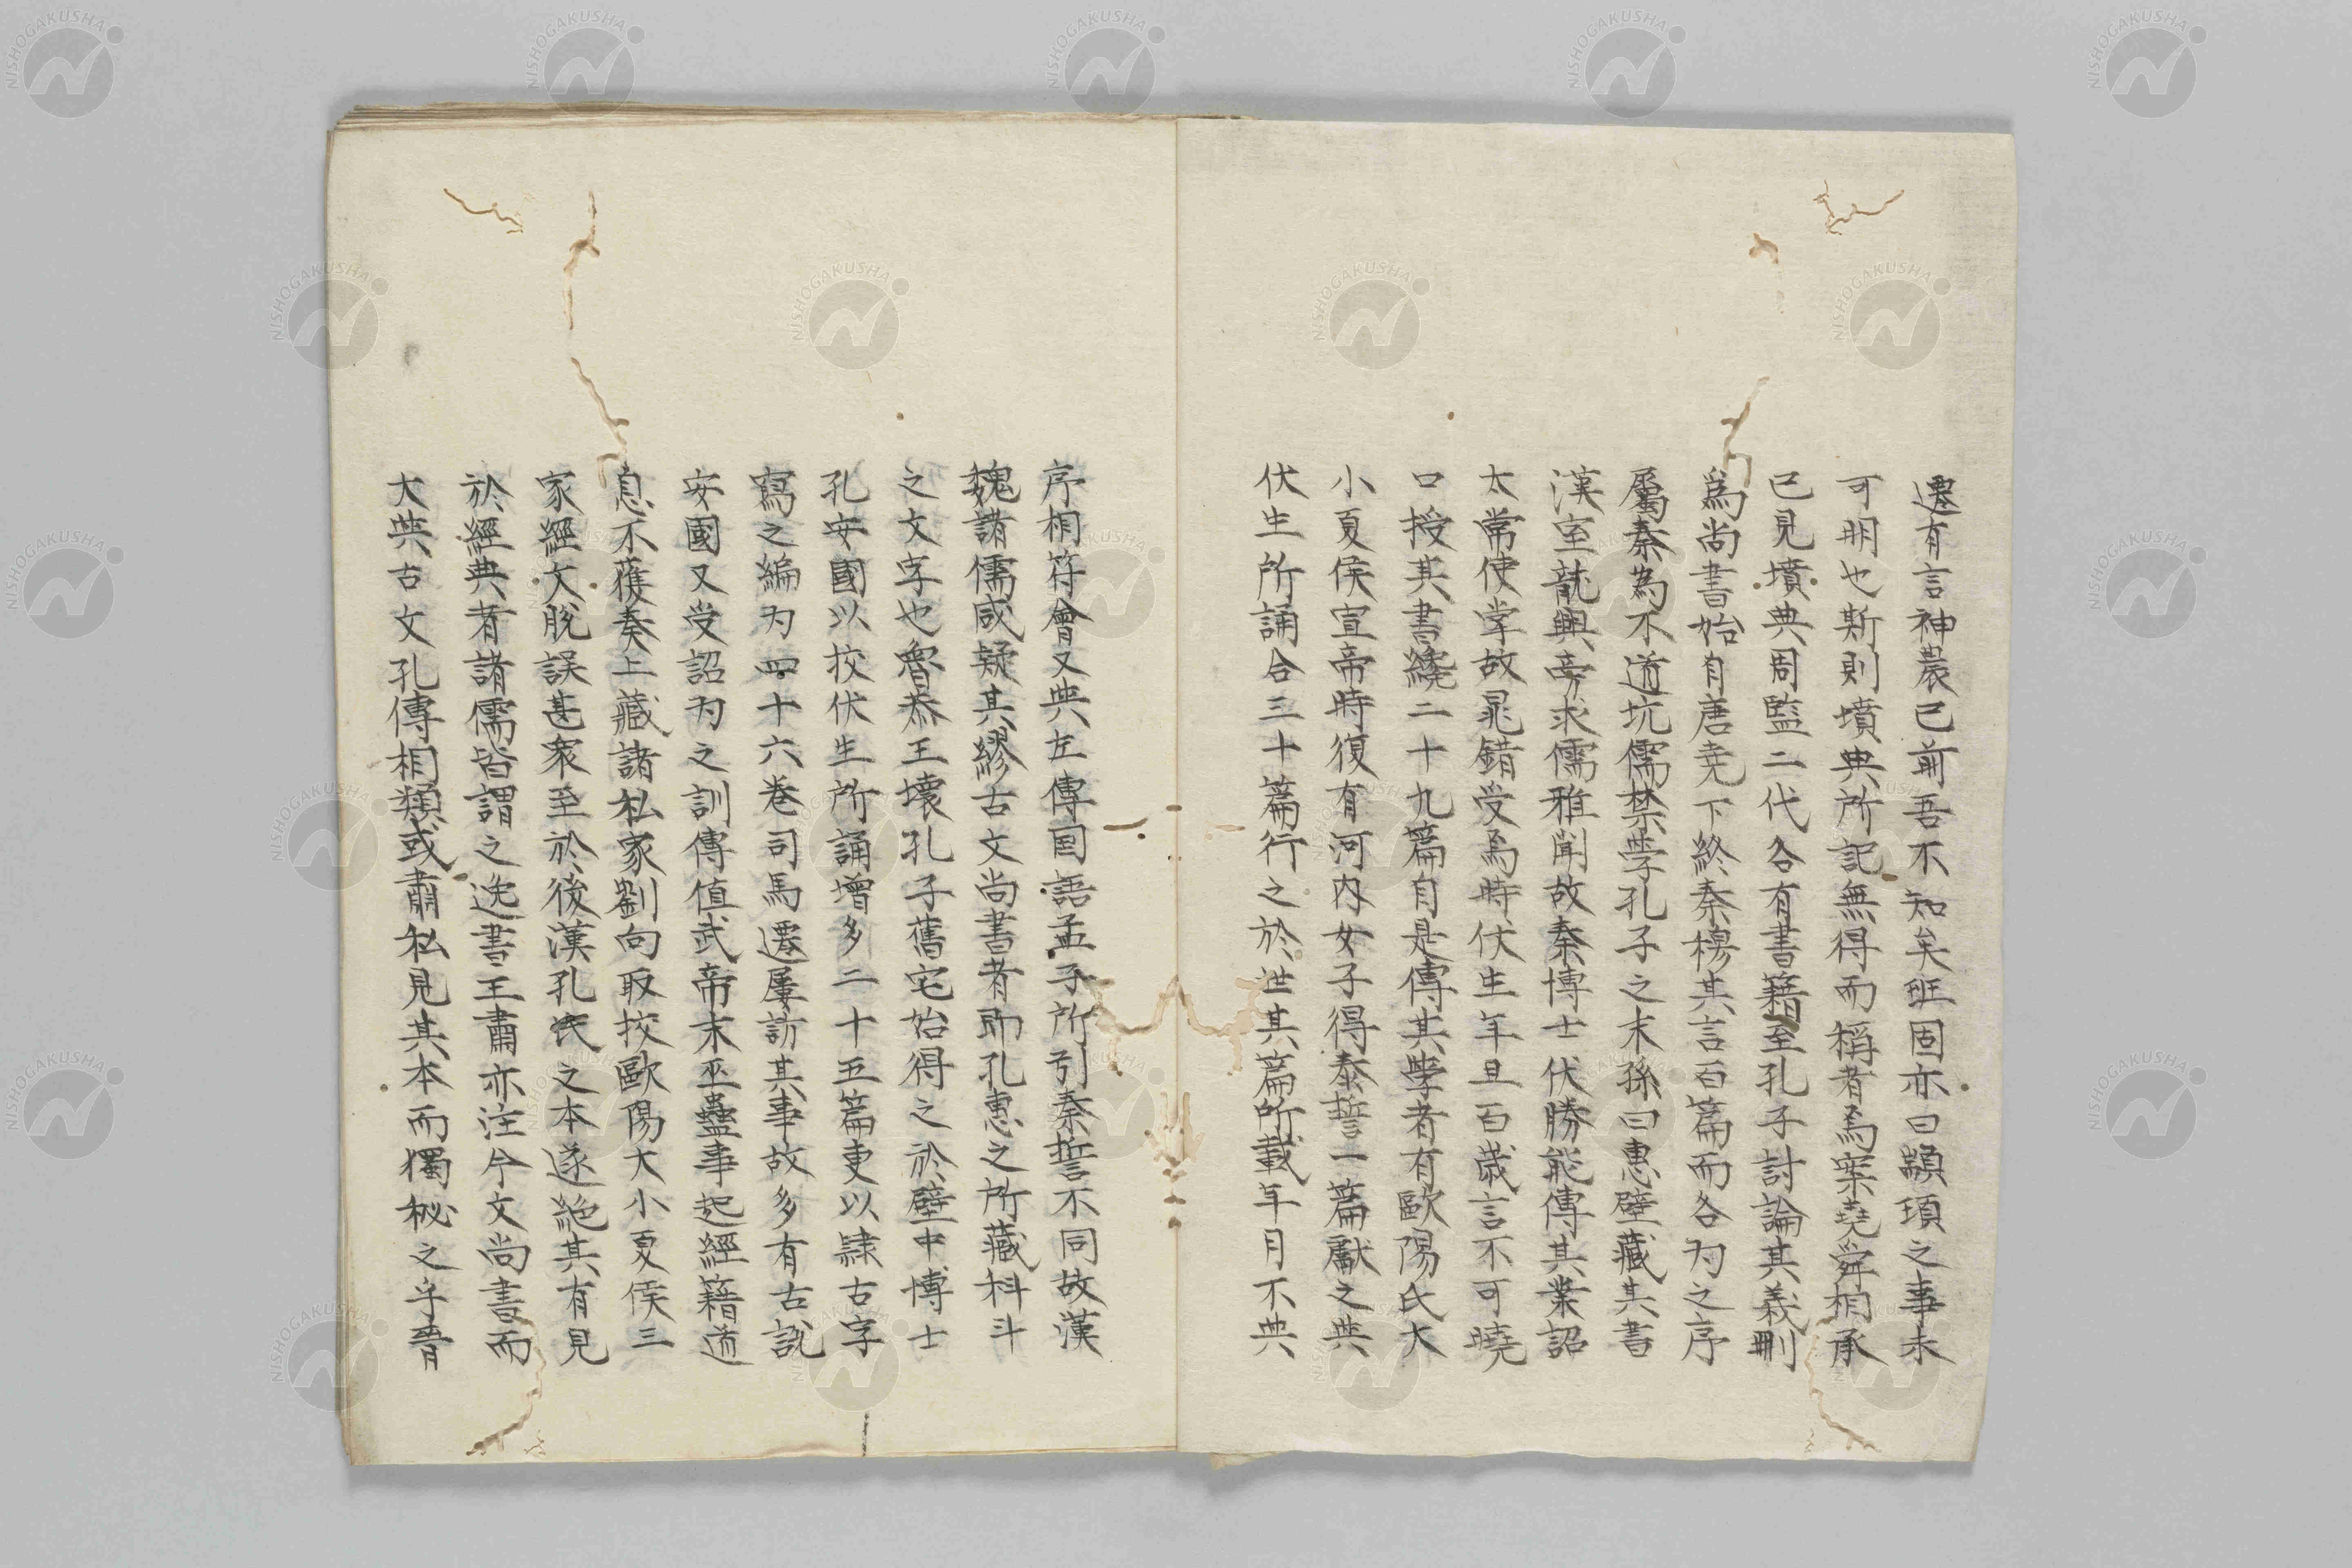 遷有言神農已前吾不知矣班固亦曰顓頊之事未
可明也斯則墳典所記無得而稱者焉案堯舜相承
已見墳典周監二代各有書籍至孔子討論其義刪
爲尚書始自唐堯下終秦穆其言百篇而各为之序
屬秦為不道坑儒禁學孔子之末孫曰惠壁藏其書
漢室龍興旁求儒雅聞故秦博士伏勝能傳其業詔
太常使掌故晁錯受焉時伏生年且百歲言不可曉
口授其書纔二十九篇自是傳其學者有歐陽氏大
小夏侯宣帝時復有河内女子得泰誓一篇獻之與
伏生所誦合三十篇行之於世其篇所載年月不與
序相符會又與左傳国語孟子所引泰誓不同故漢
魏諸儒咸疑其繆古文尚書者即孔惠之所藏科斗
之文字也魯恭王壞孔子舊宅始得之於壁中博士
孔安國以挍伏生所誦增多二十五篇更以隷古字
寫之編为四十六卷司馬遷屢訪其事故多有古說
安國又受詔为之訓傳值武帝末巫蠱事起經籍道
息不獲奏上藏諸私家劉向取挍歐陽大小夏侯三
家經文脫誤甚衆至於後漢孔氏之本遂絶其有見
於經典者諸儒皆謂之逸書王肅亦注今文尚書而
大與古文孔傳相類或肅私見其本而獨秘之乎晋
NISHOGAKUSHA